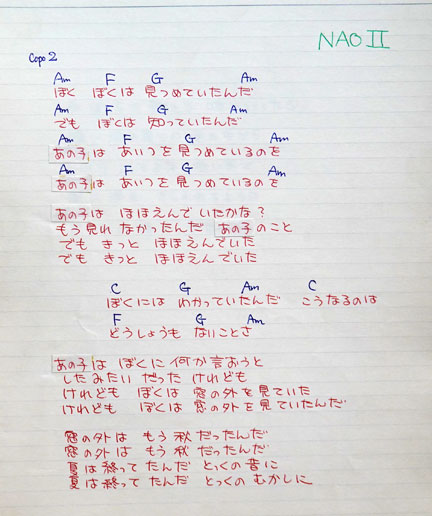 NAO II
Capo 2
Am F G Am
ぼく ぼくは 見つめていたんだ
Am F G Am
でも ぼくは 知っていたんだ
Am F G Am
あの子は あいつを見つめているのを
Am F G Am
あの子は あいつを見つめているのを
あの子は ほほえんでいたかな?
もう見れなかったんだ あの子のこと
でも きっと ほほえんでいた
でも きっと ほほえんでいた
C G Am C
ぼくには わかっていたんだ こうなるのは
F G Am
どうしょうも ないことさ
あの子は ぼくに何か言おうと
したみたい だった けれども
けれども ぼくは 窓の外を見ていた
けれども ぼくは 窓の外を見ていたんだ
窓の外は もう秋だったんだ
窓の外は もう秋だったんだ
夏は終ってたんだ とっくの昔に
夏は終ってたんだ とっくのむかしに